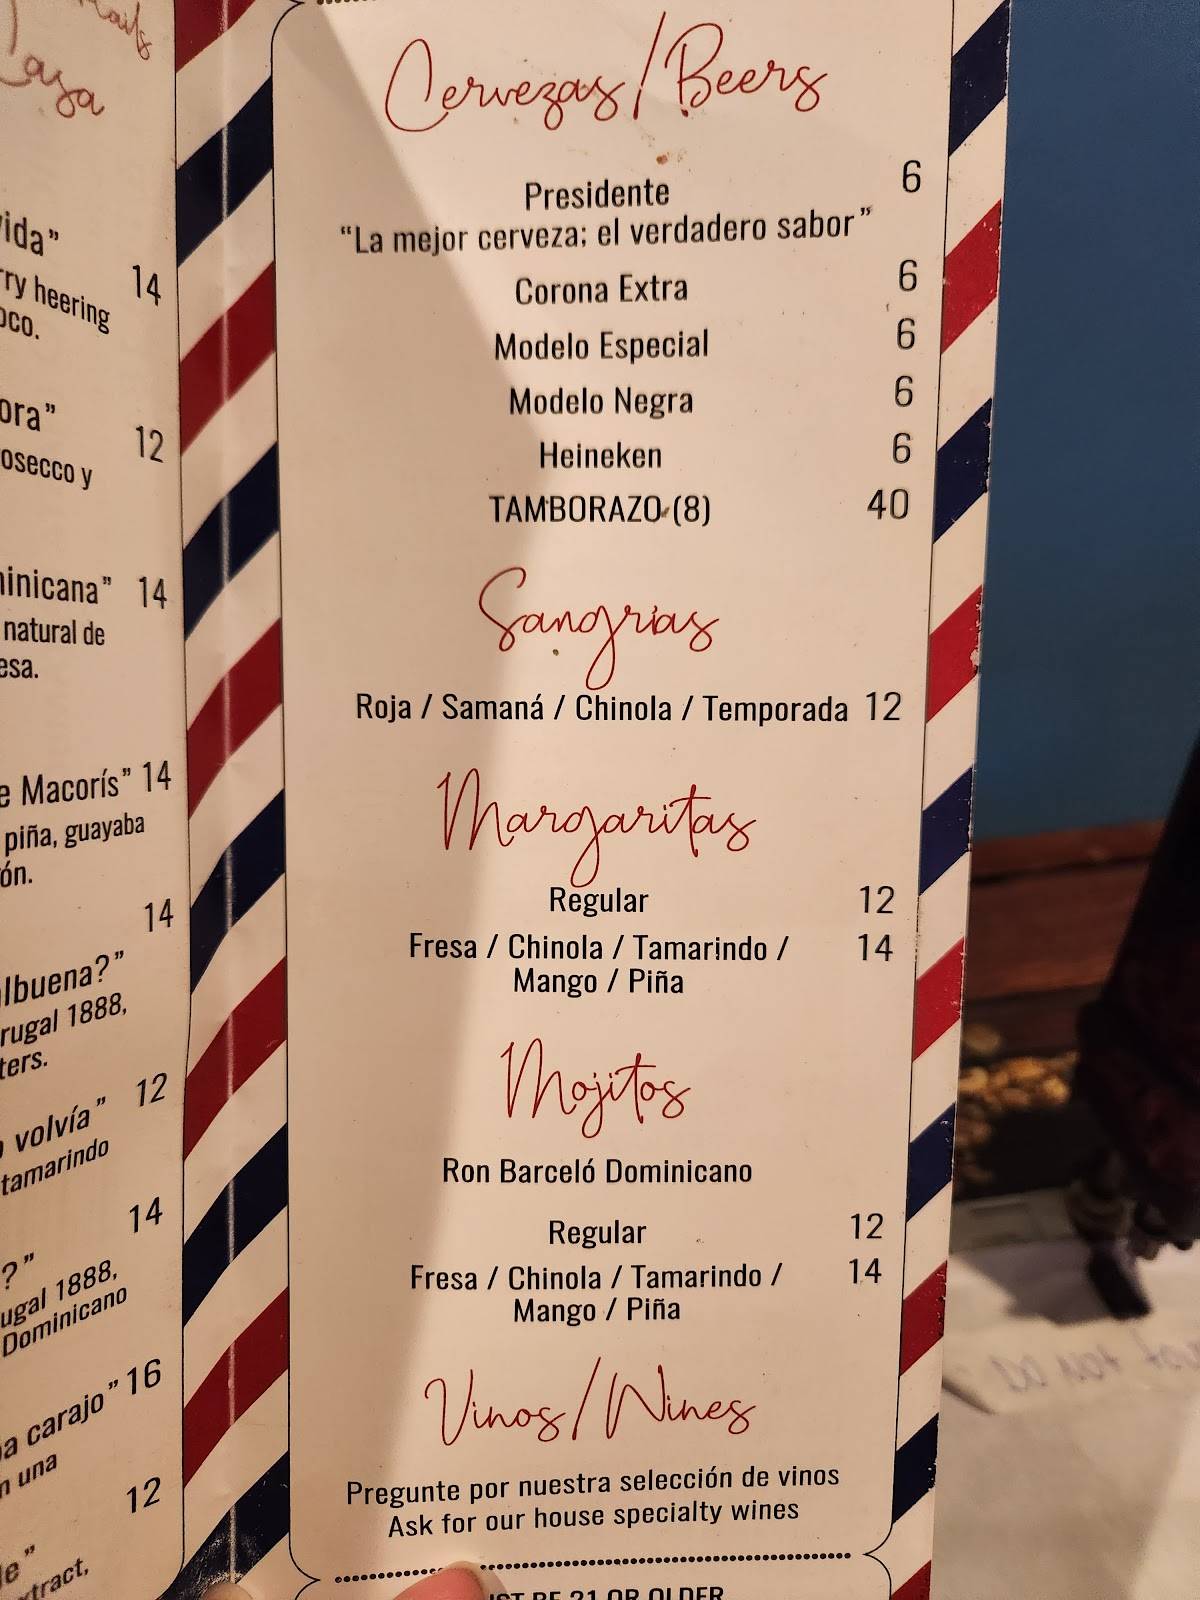 ida”
14
ry heering
oco.
ora”
12
osecco y
inicana” 14
natural de
esa.
e Macorís” 14
piña, guayaba
ón.
14
lbuena?”
rugal 1888,
ters.
12
volvía”
tamarindo
14
?”
ugal 1888,
Dominicano
a carajo” 16
n una
12
e”
xtract,
Cervezas/Beers
Presidente 6
“La mejor cerveza; el verdadero sabor”
Corona Extra 6
Modelo Especial 6
Modelo Negra 6
Heineken 6
TAMBORAZO (8) 40
Sangrias
Roja / Samaná / Chinola / Temporada 12
Margaritas
Regular 12
Fresa / Chinola / Tamarindo / 14
Mango / Piña
Mojitos
Ron Barceló Dominicano
Regular 12
Fresa / Chinola / Tamarindo / 14
Mango / Piña
Vinos/Wines
Pregunte por nuestra selección de vinos
Ask for our house specialty wines
BE 21 OR OLDER
DO NOT